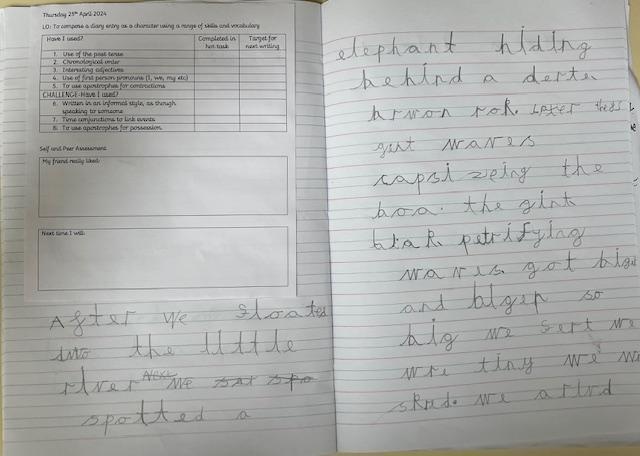 Thursday 25th April 2024
LO: To compose a diary entry as a character using a range of skills and vocabulary
Have I used? Completed in hot task Target for next writing
1. Use of the past tense
2. Chronological order
3. Interesting adjectives
4. Use of first person pronouns (I, we, my etc)
5. To use apostrophes for contractions
CHALLENGE-Have I used?
6. Written in an informal style, as though speaking to someone
7. Time conjunctions to link events
8. To use apostrophes for possession.
Self and Peer Assessment
My friend really liked:
Next time I will:
After we floated
into the little
river Next we sat spo
spotted a
elephant hiding
behind a derte
brwon rok. Later
gint waves
capsizeing the
boa. the gint
blak petrifying
waves got
and biger so
big we
wre tiny we
skred. we arivd